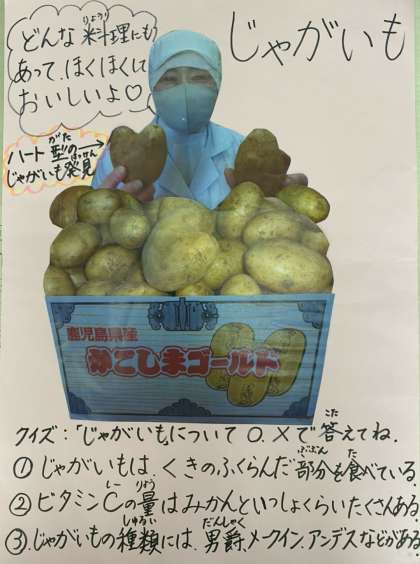 じゃがいも
どんな料理にも
りょうり
あって、ほくほくして
おいしいよ♡
ハート型の→
がた
じゃがいも発見
はっけん
鹿児島県産
かごしまゴールド
クイズ:「じゃがいも」について○、×で答えてね。
こた
①じゃがいもは、くきのふくらんだ部分を食べている。
ぶぶん た
②ビタミンCの量はみかんといっしょくらいたくさんある。
シー りょう
③じゃがいもの種類には、男爵、メークイン、アンデスなどがある。
しゅるい だんしゃく